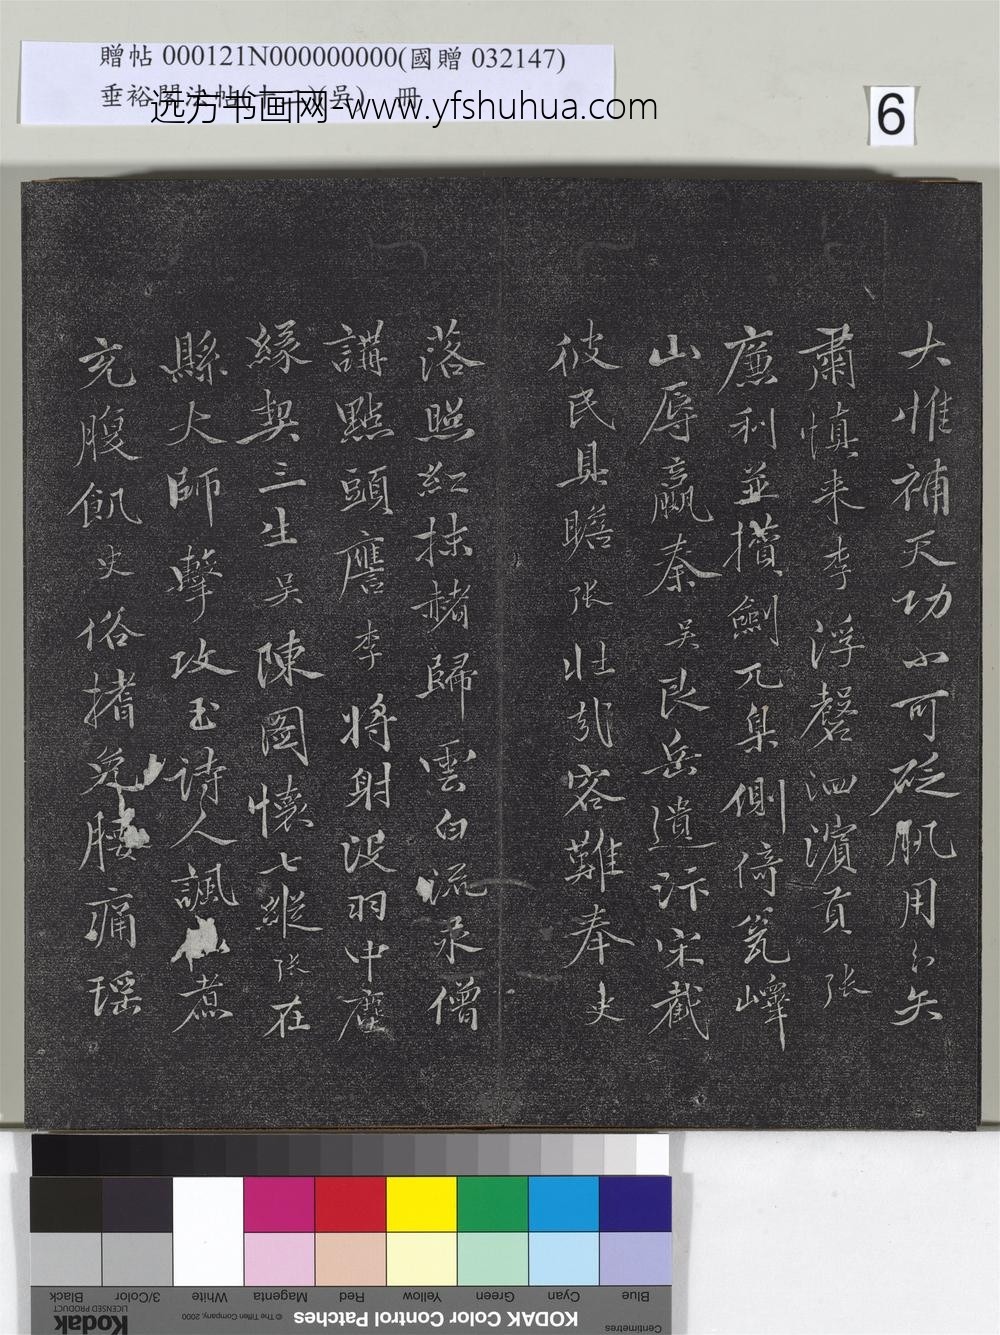 贈帖 000121N000000000(國贈 032147)
垂裕閣法帖(吳) 冊
远方书画网-www.yfshuhua.com
6
大惟補天功小可砭肌用分矢
肅慎来李浮磬泗濱貢张
廉利並攢劍兀臬側倚瓮嶧
山辱嬴秦吴艮岳遺汴宋截
彼民具瞻张壯哉容難奉史
落照紅抹赭歸雲白流汞僧
講點頭譍李将射没羽中塵
緣契三生吴陳圖懷七縱张在
縣大師擊攻玉诗人諷煮
充腹飢史俗揩腰痛瑶
Black
3/Color
White
Magenta
Red
Yellow
Green
Cyan
Blue
Kodak
LICENSED PRODUCT
© The Tiffen Company, 2000
KODAK Color Control Patches
Centimetres